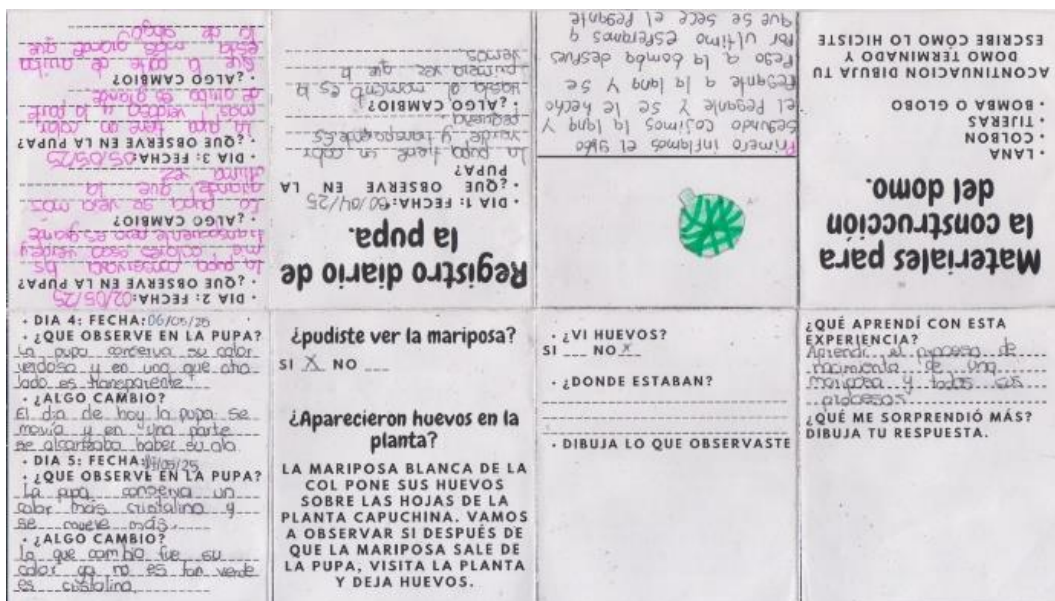 Materiales para
la construcción
del domo.
• LANA
• COLBON
• TIJERAS
• BOMBA O GLOBO
ACONTINUACION DIBUJA TU
DOMO TERMINADO Y
ESCRIBE CÓMO LO HICISTE
Primero inflamos el globo
Segundo cojimos la lana y
el Pegante Y se le hecho
Pegante a la lana Y se
Pego a la bomba despues
Por ultimo esperamos q
que se sece el Pegante
Registro diario de
la pupa.
• DIA 1: FECHA:
• ¿QUE OBSERVE EN LA
PUPA?
La pupa tiene un color
verde y transparente Es
pequeña.
• ¿ALGO CAMBIO?
Hasta el momento es la
primera vez que la
vemos.
• DIA 2: FECHA:02/05/25
• ¿QUE OBSERVE EN LA PUPA?
La pupa conservava
colores esos verde y
transparente pero es
• ¿ALGO CAMBIO?
La pupa se veia mas
grande que la
ultima vez
• DIA 3: FECHA:05/05/25
• ¿QUE OBSERVE EN LA PUPA?
La pupa tiene un color
mas verdoso y la parte
de arriba es grande
• ¿ALGO CAMBIO?
que la parte de arriba
esta mas grande que
la de abajo
• DIA 4: FECHA:06/05/25
• ¿QUE OBSERVE EN LA PUPA?
La pupa conserva su color
verdoso y en una que otro
lado es transparente
• ¿ALGO CAMBIO?
El dia de hoy la pupa se
movia y en una parte
se alcanzaba haber su ala
• DIA 5: FECHA: /05/25
• ¿QUE OBSERVE EN LA PUPA?
La pupa conserva un
color mas cristalino y
se mueve más.
• ¿ALGO CAMBIO?
lo que cambio fue su
color ya no es tan verde
es cristalina
¿pudiste ver la mariposa?
SI X NO ___
¿Aparecieron huevos en la
planta?
LA MARIPOSA BLANCA DE LA
COL PONE SUS HUEVOS
SOBRE LAS HOJAS DE LA
PLANTA CAPUCHINA. VAMOS
A OBSERVAR SI DESPUÉS DE
QUE LA MARIPOSA SALE DE
LA PUPA, VISITA LA PLANTA
Y DEJA HUEVOS.
• ¿VI HUEVOS?
SI ___ NO X
• ¿DONDE ESTABAN?
• DIBUJA LO QUE OBSERVASTE
¿QUÉ APRENDÍ CON ESTA
EXPERIENCIA?
Aprendi el proceso de
nacimiento de una
mariposa y todos sus
procesos
¿QUÉ ME SORPRENDIÓ MÁS?
DIBUJA TU RESPUESTA.